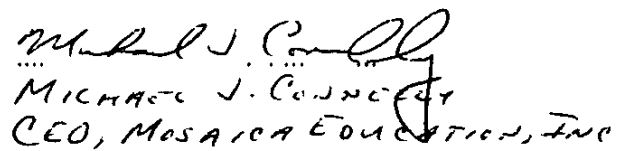 Michael J. Connelly
MICHAEL J. CONNELLY
CEO, MOSAICA EDUCATION, INC